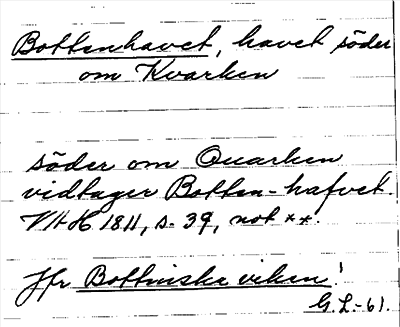 Bottenhavet, havet söder
om Kvarken
söder om Quarken
vidtager Botten-hafvet.
VAH 1811, s. 39, not **.
Jfr Bottniska viken!
G.L-61.